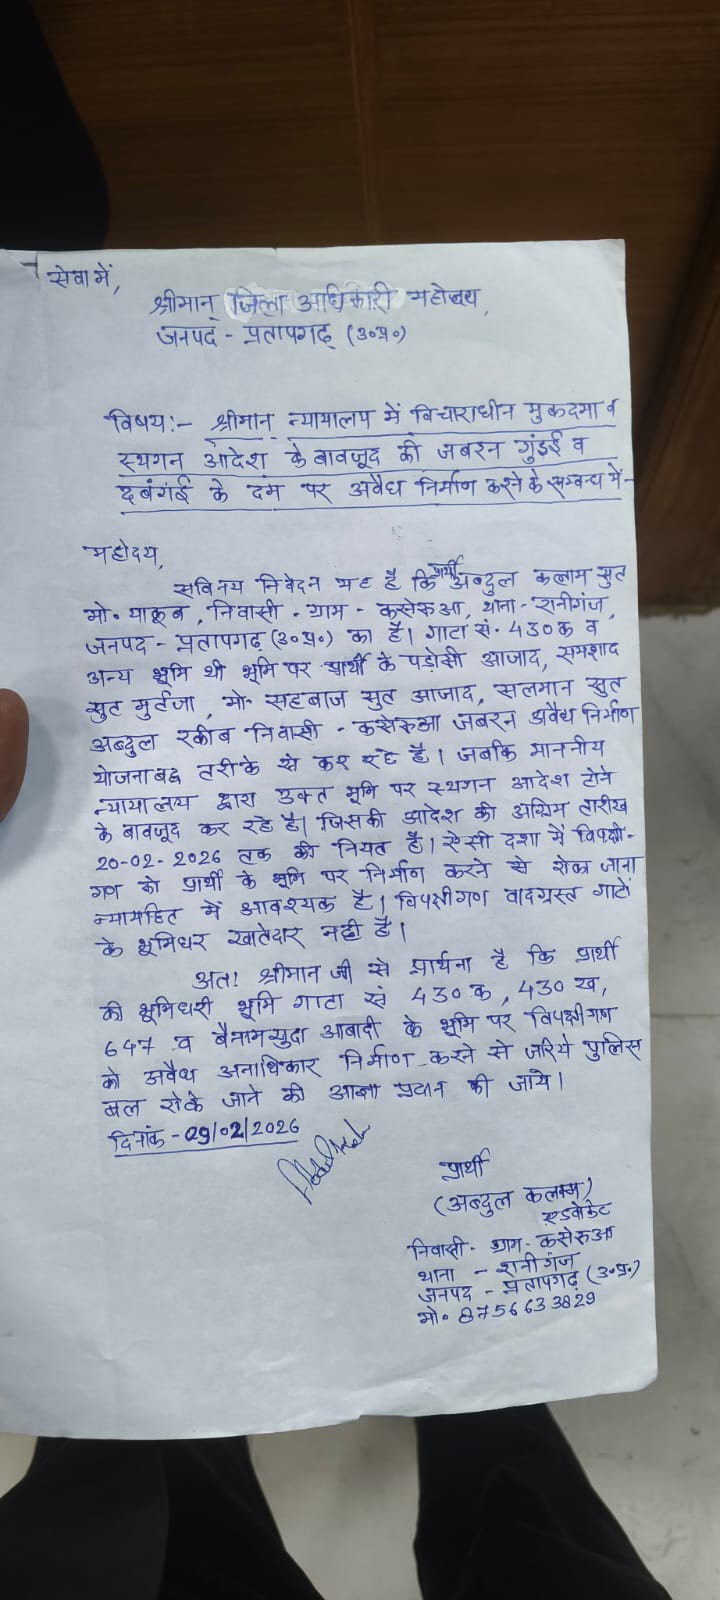 सेवा में,
श्रीमान् जिला अधिकारी महोदय,
जनपद - प्रतापगढ़ (उ०प्र०)
विषय:- श्रीमान् न्यायालय में विचाराधीन मुकदमा व
स्थगन आदेश के बावजूद की जबरन गुंडई व
दबंगई के दम पर अवैध निर्माण करने के सम्बन्ध में-
महोदय,
सविनय निवेदन यह है कि प्रार्थी अब्दुल कलाम सुत
मो० याकूब, निवासी - ग्राम - कसेरुआ, थाना - रानीगंज,
जनपद - प्रतापगढ़ (उ०प्र०) का है। गाटा सं. 430क व
अन्य भूमि थी भूमि पर प्रार्थी के पड़ोसी आजाद, समशाद
सुत मुर्तजा, मो० सहबाज सुत आजाद, सलमान सुत
अब्दुल रकीब निवासी - कसेरुआ जबरन अवैध निर्माण
योजनाबद्ध तरीके से कर रहे है। जबकि माननीय
न्यायालय द्वारा उक्त भूमि पर स्थगन आदेश होने
के बावजूद कर रहे है। जिसकी आदेश की अग्रिम तारीख
20-02-2026 तक की नियत है। ऐसी दशा में विपक्षी-
गण को प्रार्थी के भूमि पर निर्माण करने से रोका जाना
न्यायहित में आवश्यक है। विपक्षीगण वादग्रस्त गाटों
के भूमिधर खातेदार नहीं है।
अतः श्रीमान जी से प्रार्थना है कि प्रार्थी
की भूमिधरी भूमि गाटा सं 430क, 430ख,
647 व बैनामसुदा आबादी के भूमि पर विपक्षीगण
को अवैध अनाधिकार निर्माण करने से जरिये पुलिस
बल रोके जाने की आज्ञा प्रदान की जाये।
दिनांक - 09/02/2026
प्रार्थी
(अब्दुल कलाम)
एडवोकेट
निवासी - ग्राम - कसेरुआ
थाना - रानीगंज
जनपद - प्रतापगढ़ (उ०प्र०)
मो० 8756633829